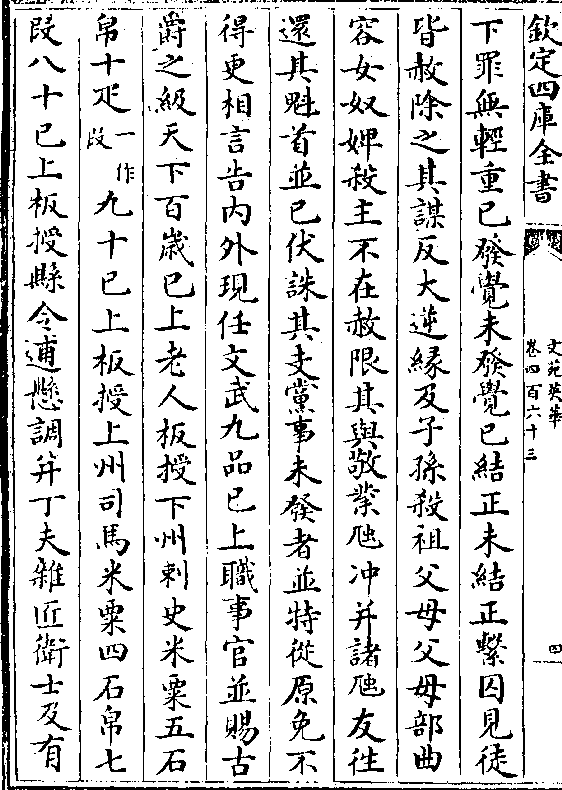 欽定四庫全書
文苑英華
卷四百六十三
四
下罪無輕重已發覺未發覺已結正未結正繫囚見徒
皆赦除之其謀反大逆緣及子孫殺祖父母父母部曲
容女奴婢殺主不在赦限其與敬業虺冲并諸虺友徃
還其魁首並已伏誅其支黨事未發者並特從原免不
得更相言告内外現任文武九品已上職事官並賜古
爵之級天下百歲已上老人板授下州刺史米粟五石
帛十疋一作段九十已上板授上州司馬米粟四石帛七
段八十已上板授縣令逋懸調并丁夫雜匠衛士及有